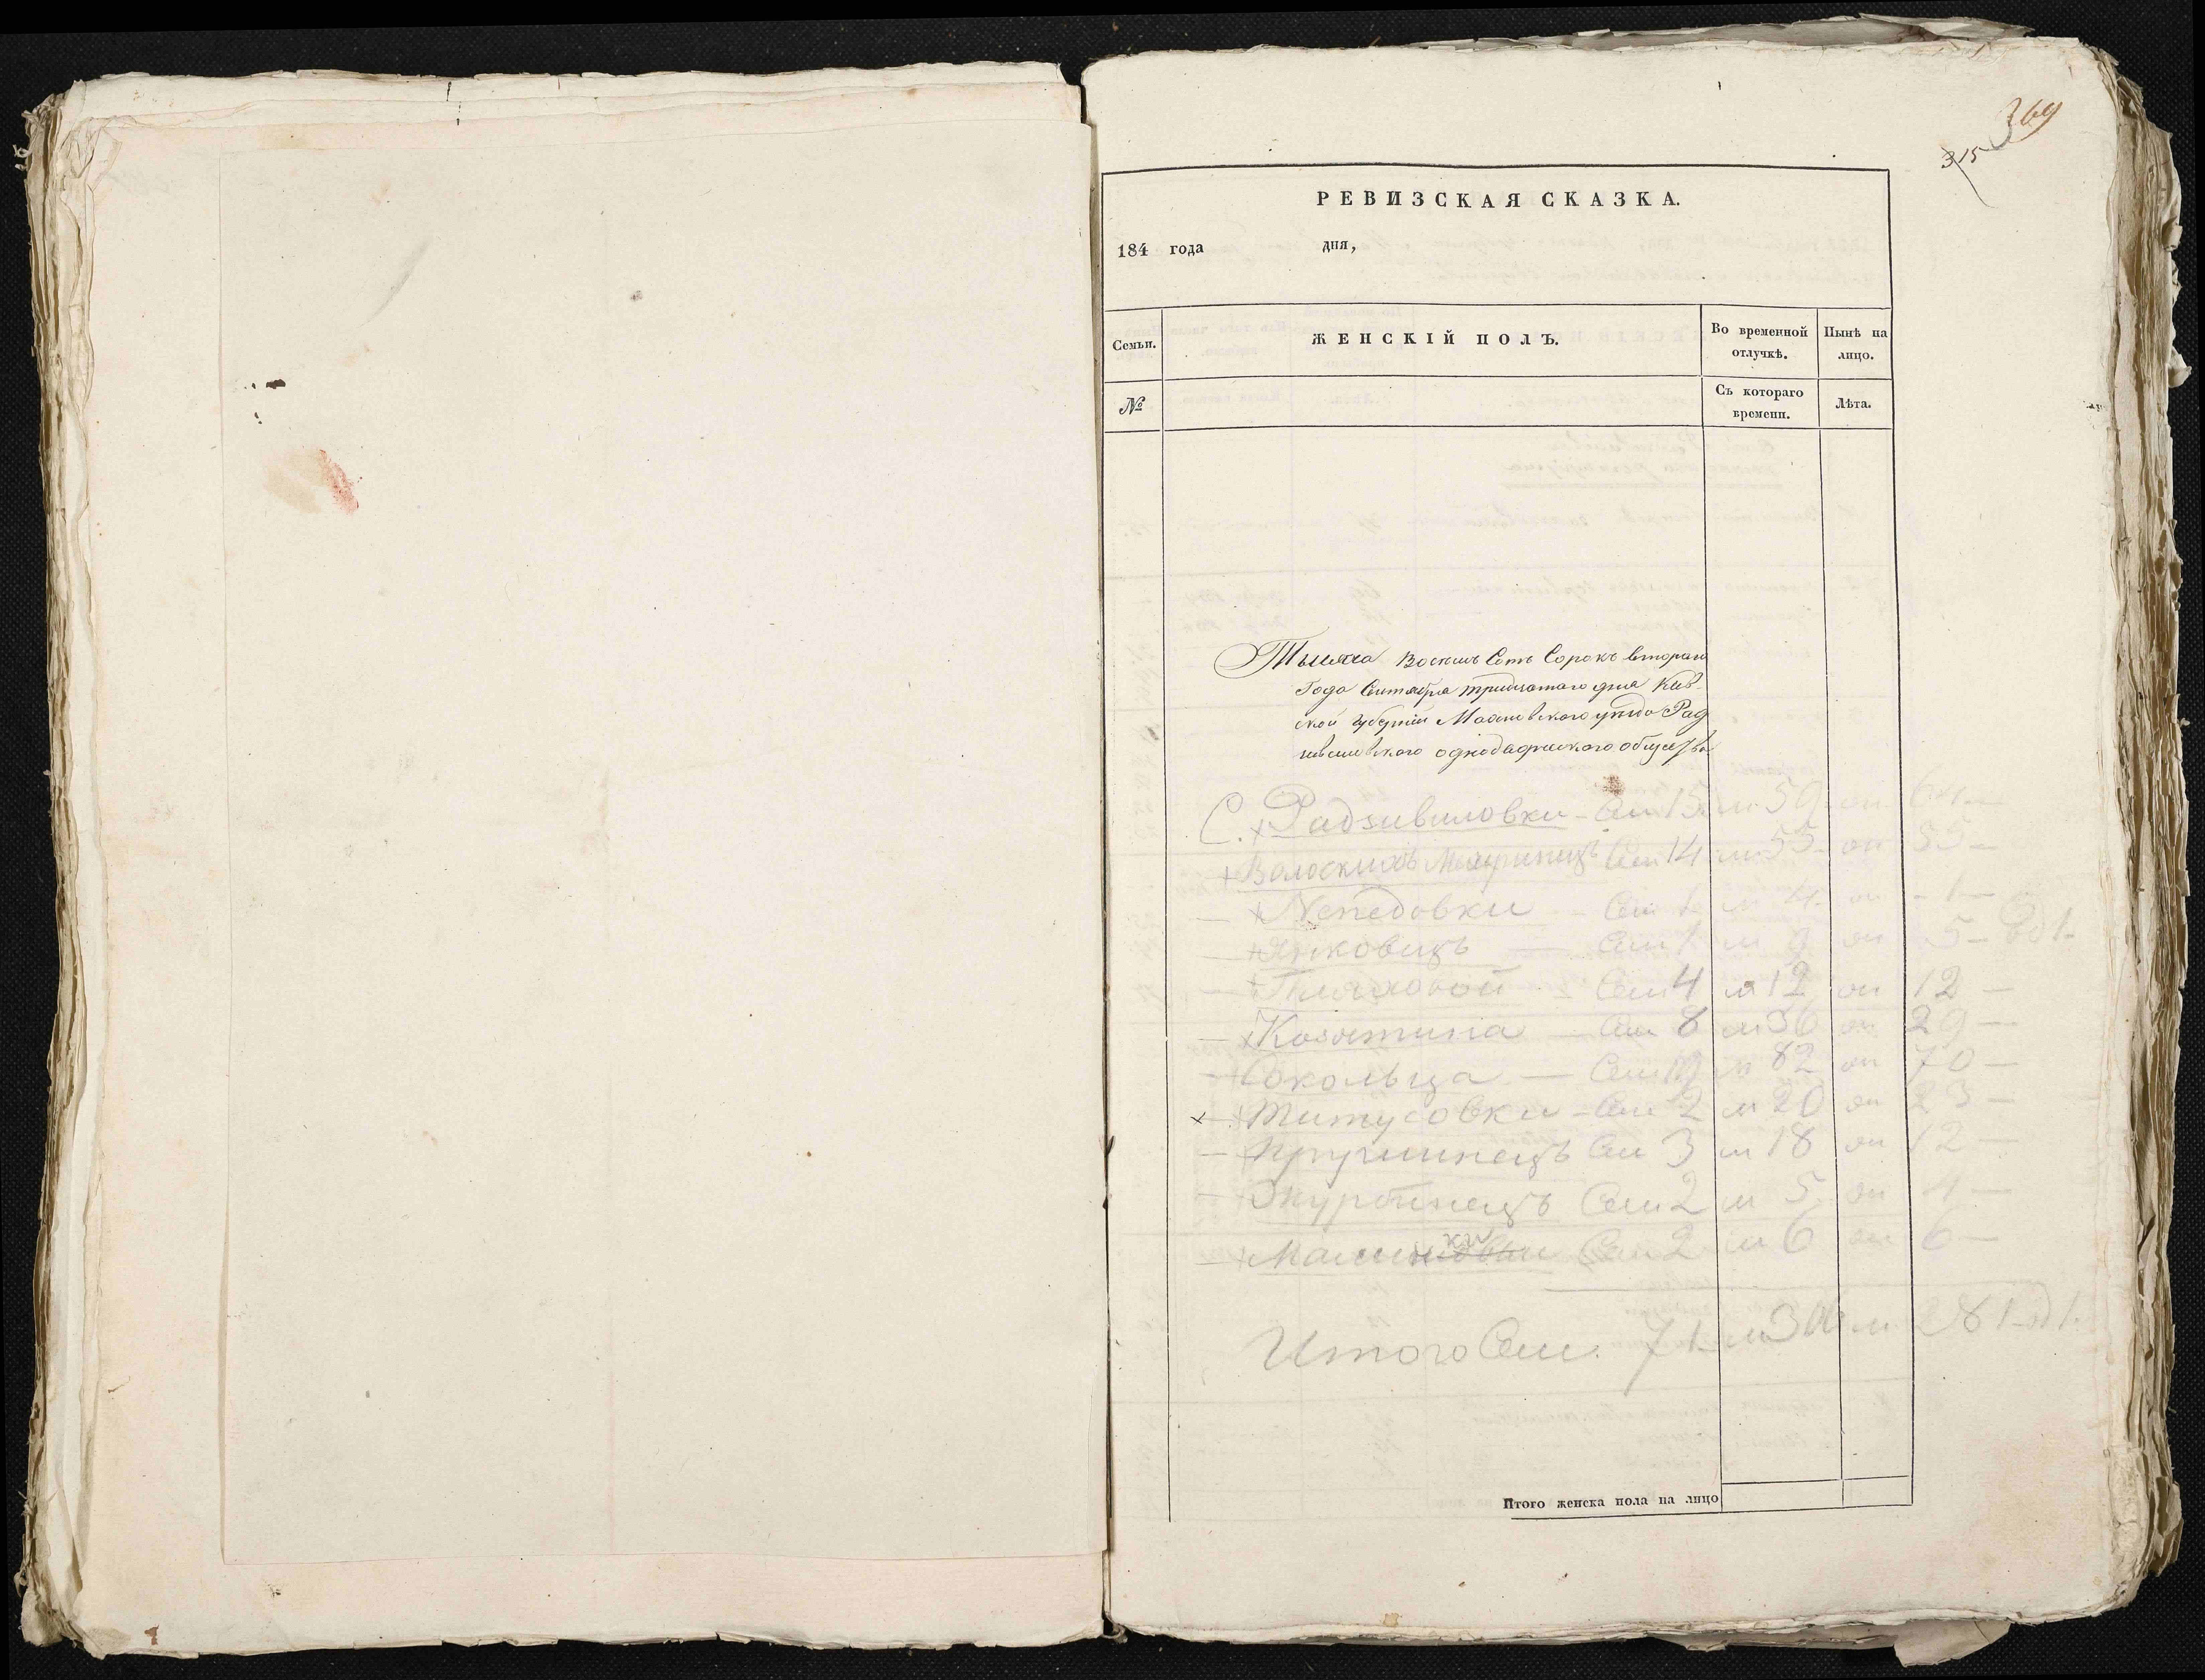 369
315
РЕВИЗСКАЯ СКАЗКА.
184 года дня,
Семьи. ЖЕНСКІЙ ПОЛЪ. Во временной отлучкѣ. Нынѣ на лицо.
№ Съ котораго времени. Лѣта.
Тысяча Восемь Сотъ Сорокъ втораго
Года Сентября тридцатаго дня Кіев-
ской губерніи Махновского уѣзда Рад
зивиловского однодворческого общества
С. Радзивиловки - Сем 15. м 59
Волоскихъ Сем 14 м 55 жп 55 -
Непедовки - Сем 1 м 4 жп - 1 -
Янковецъ - Сем 1 м 9 жп 5 -
Сем 4 м 12 жп 12 -
Козятина - Сем 8 м 36 жп 29 -
Сокольца - Сем 19 м 82 жп 70 -
Титусовки - Сем 2 м 20 жп 23 -
Сем 3 м 18 жп 12 -
Журбинецъ Сем 2 м 5 жп
ки
Сем 2 м 6 жп 6 -
Итого Сем. 71 м 306 281
Итого женска пола на лицо